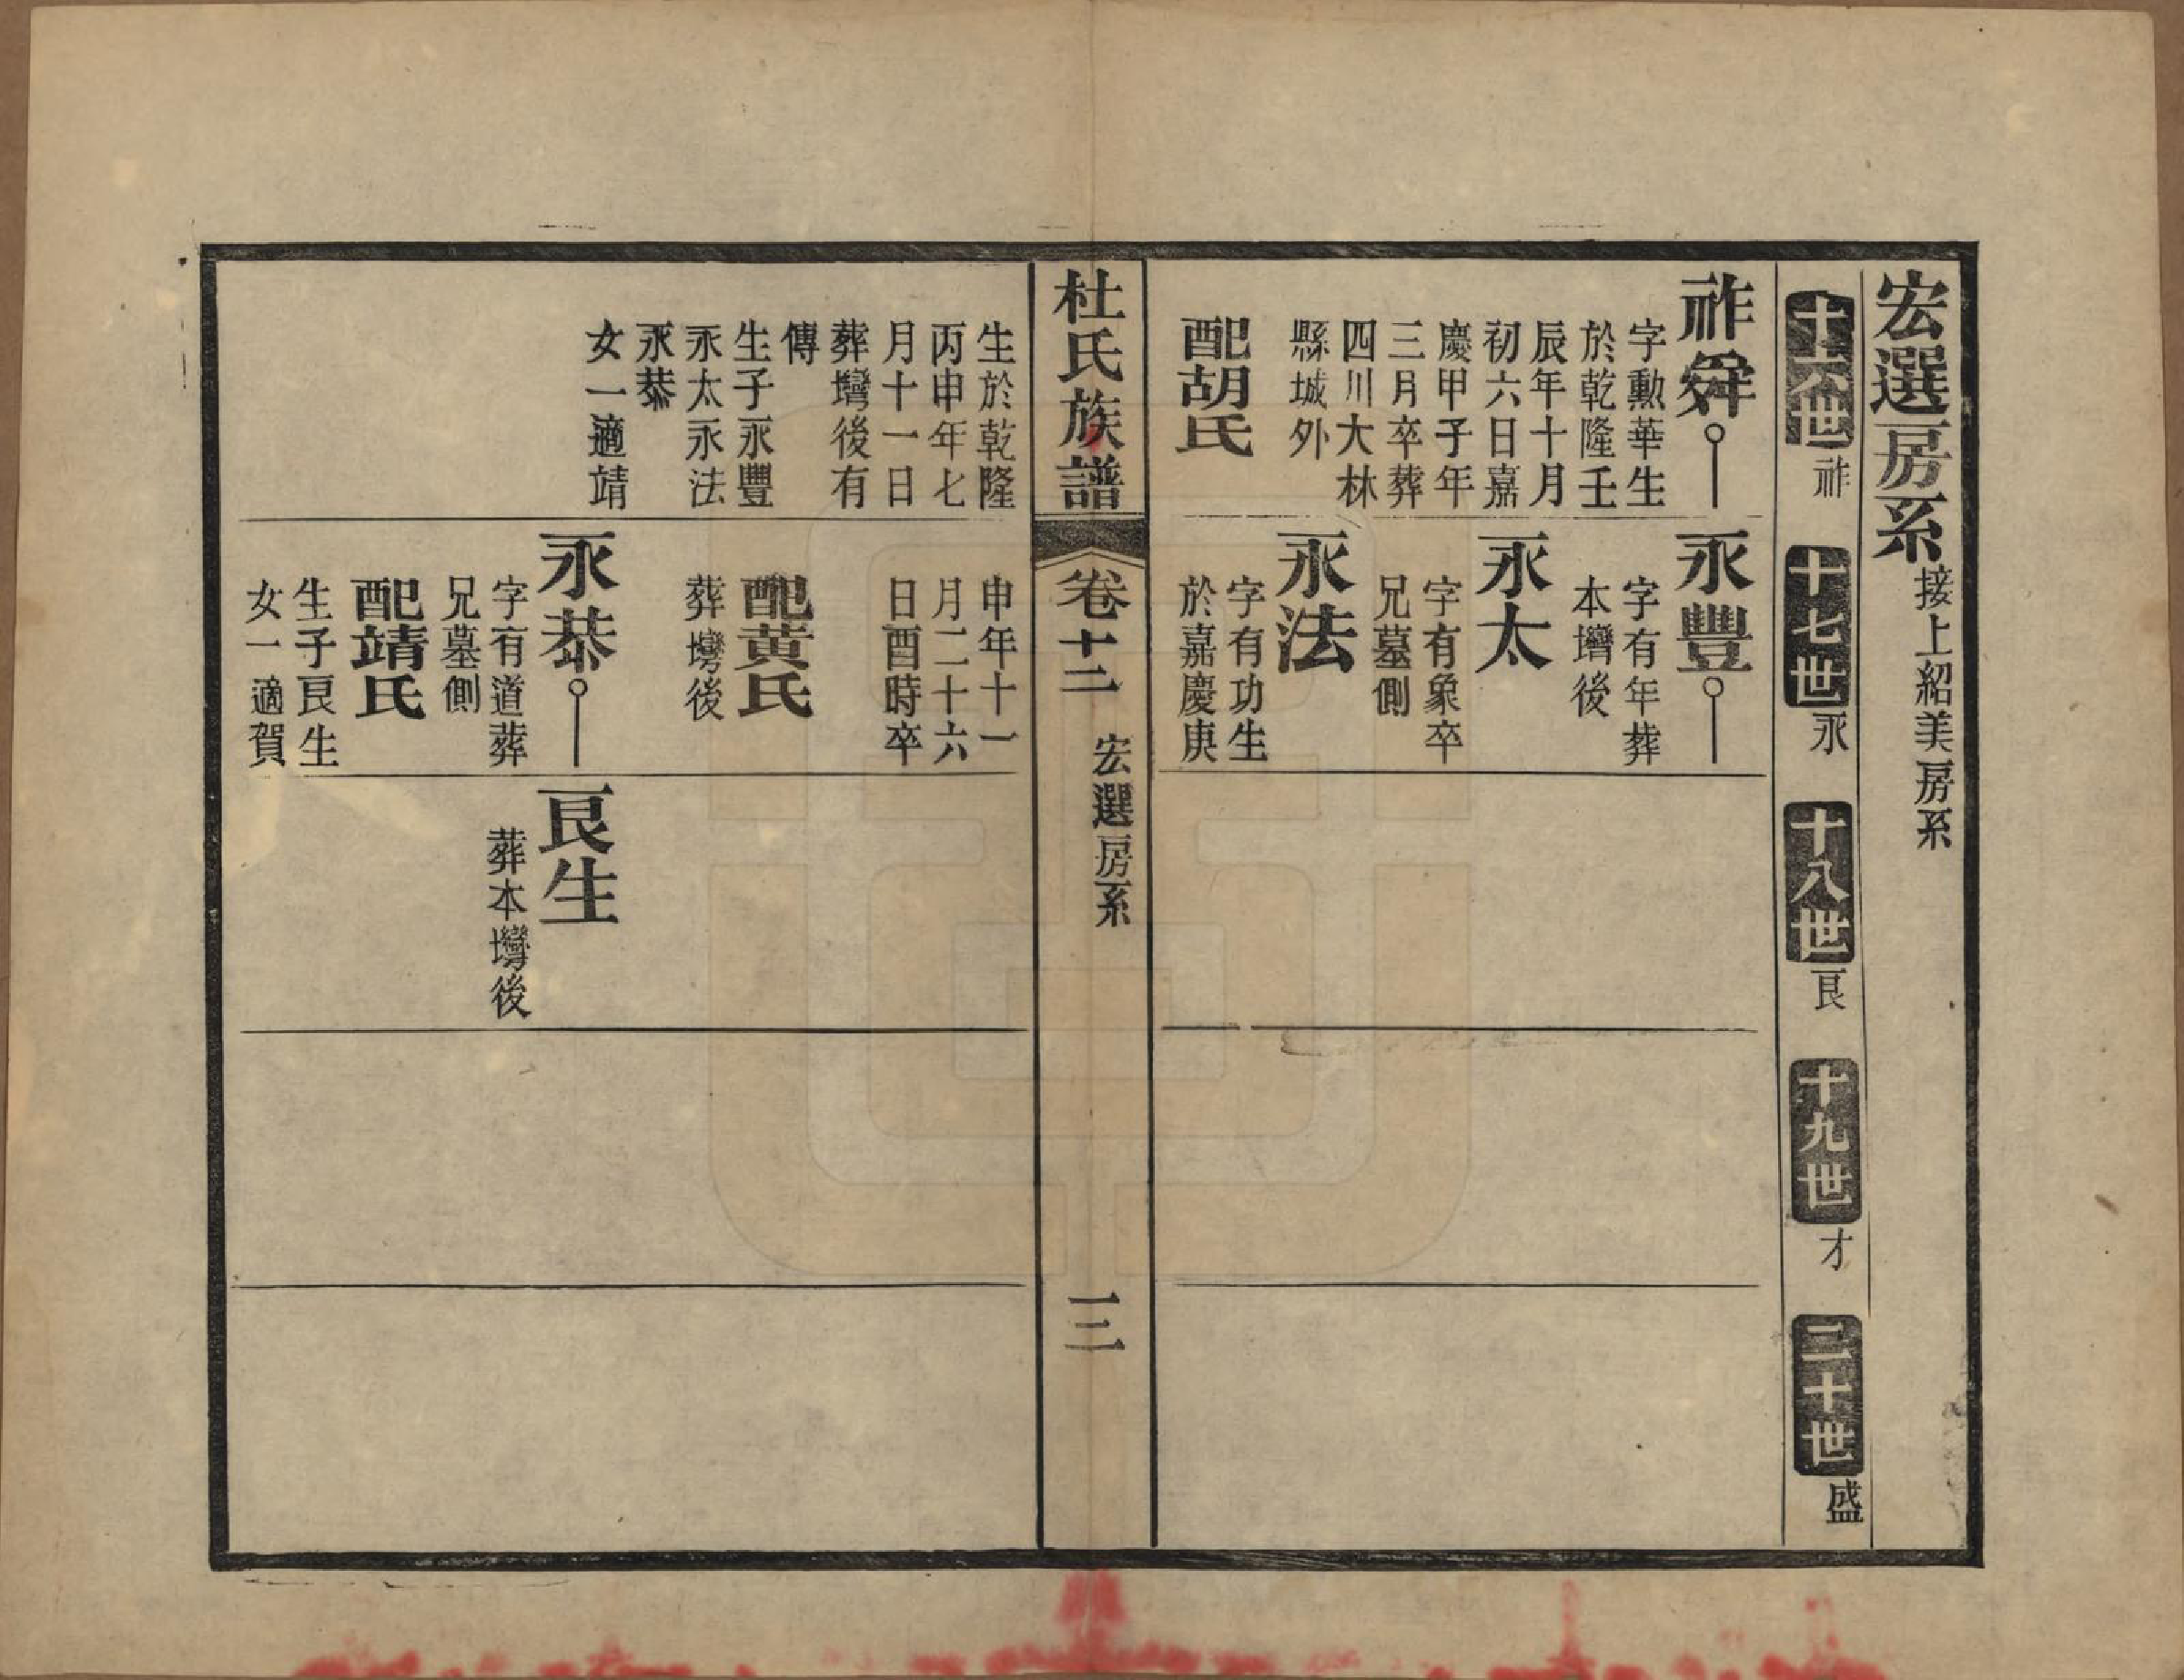 宏選房系接上紹美房系
十六世祚
十七世永
十八世良
十九世才
二十世盛
祚舜
字勲華生
於乾隆壬
辰年十月
初六日嘉
慶甲子年
三月卒葬
四川大林
縣城外
配胡氏
永豐
字有年葬
本塆後
永太
字有象卒
兄墓側
永法
字有功生
於嘉慶庚
杜氏族譜
卷十二
宏選房系
三
生於乾隆
丙申年七
月十一日
葬塆後有
傳
生子永豐
永太永法
永恭
女一適靖
申年十一
月二十六
日酉時卒
配黄氏
葬塆後
永恭
字有道葬
兄墓側
配靖氏
生子良生
女一適賀
良生
葬本塆後